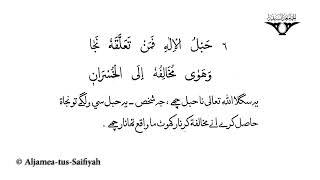 ٦ حَبْلُ الْإِلٰهِ فَمَنْ تَعَلَّقَهٗ نَجَا
وَهَوٰى مُخَالِفُهٗ اِلَى الْخُسْرَانِ
يه سگلا الله تعالى نا حبل چھے، جه شخص - يه حبل سي ولگے تو نجاة
حاصل كرے انے مخالفة كرنار كھوٹ ما واقع تھانار چھے.
© Aljamea-tus-Saifiyah